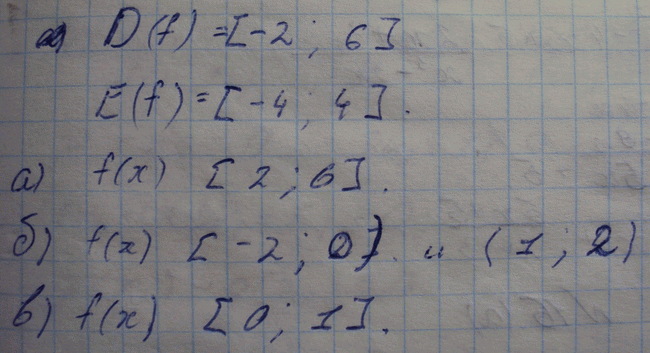 D(f) = [-2; 6].
E(f) = [-4; 4].
а) f(x) [2; 6].
б) f(x) [-2; 0]. и (1; 2)
в) f(x) [0; 1].